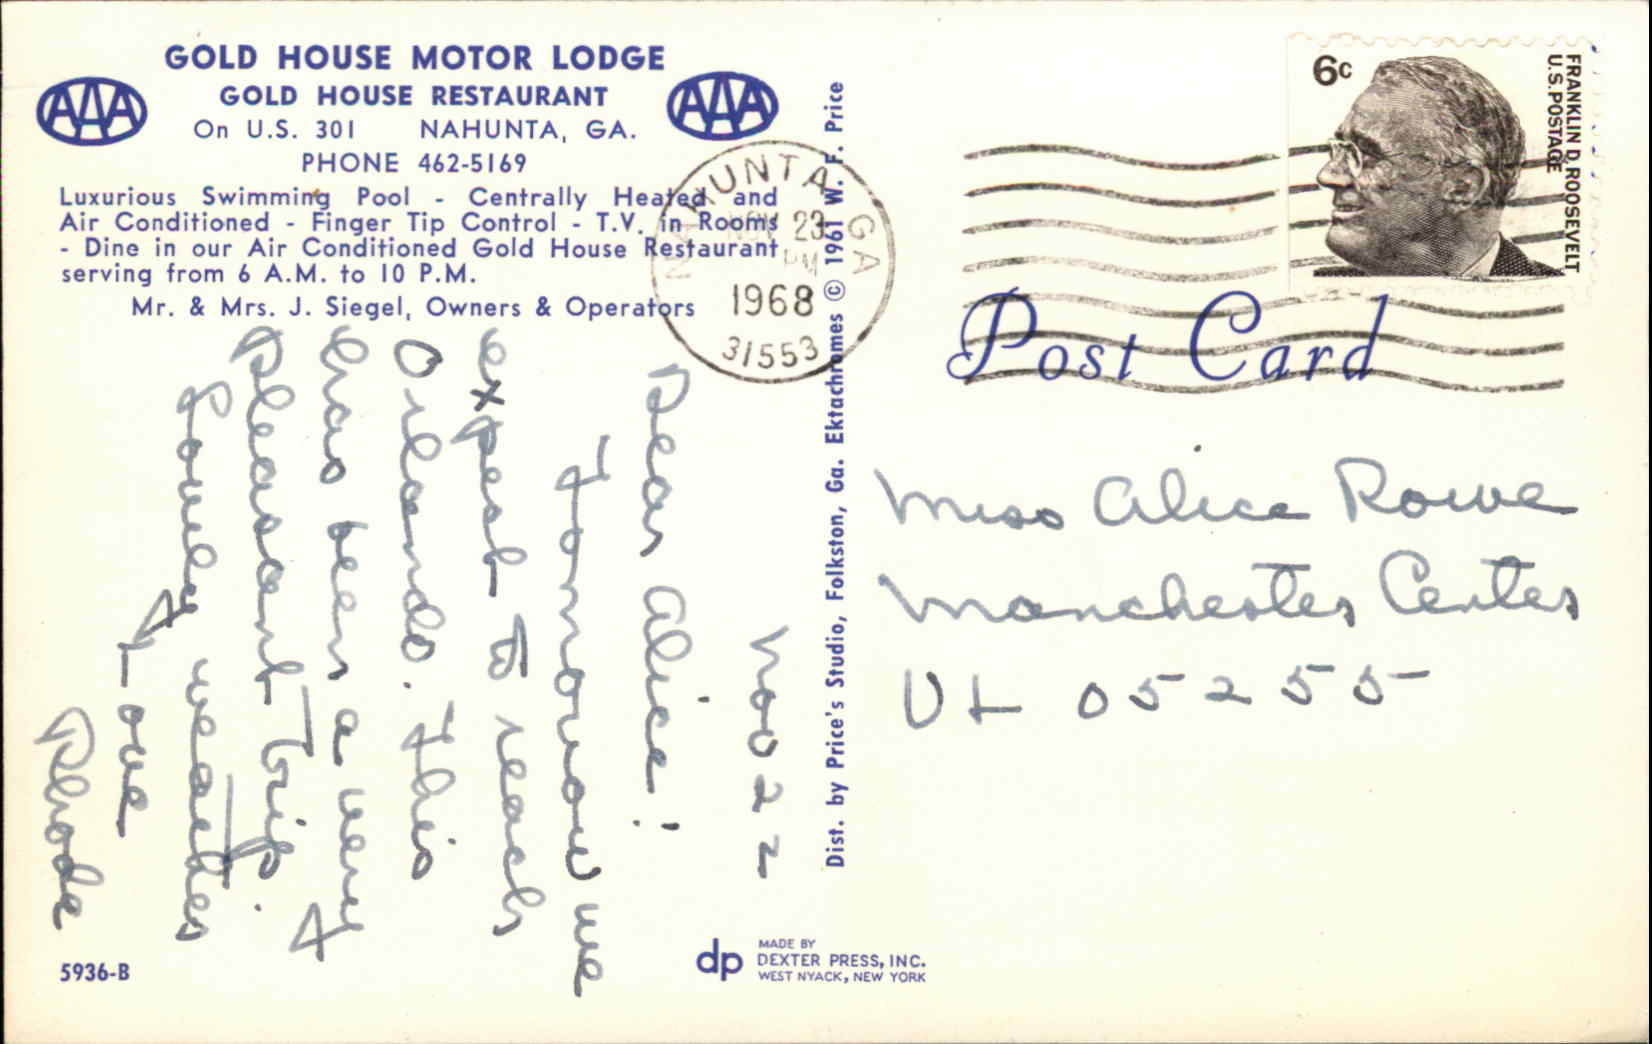 GOLD HOUSE MOTOR LODGE
AAA
GOLD HOUSE RESTAURANT
AAA
On U.S. 301 NAHUNTA, GA.
PHONE 462-5169
Luxurious Swimming Pool - Centrally Heated and
Air Conditioned - Finger Tip Control - T.V. in Rooms
- Dine in our Air Conditioned Gold House Restaurant
serving from 6 A.M. to 10 P.M.
Mr. & Mrs. J. Siegel, Owners & Operators
Nov 22
Dear Alice!
Tomorrow we
expect to reach
Orlando. This
has been a very
pleasant trip.
Lovely weather
Love
Rhoda
5936-B
Dist. by Price's Studio, Folkston, Ga. Ektachromes © 1961 W. F. Price
dp
MADE BY
DEXTER PRESS, INC.
WEST NYACK, NEW YORK
NAHUNTA, GA
NOV 23
PM
1968
31553
6c
FRANKLIN D. ROOSEVELT
U.S. POSTAGE
Post Card
Miss Alice Rowe
Manchester Center
Vt 05255